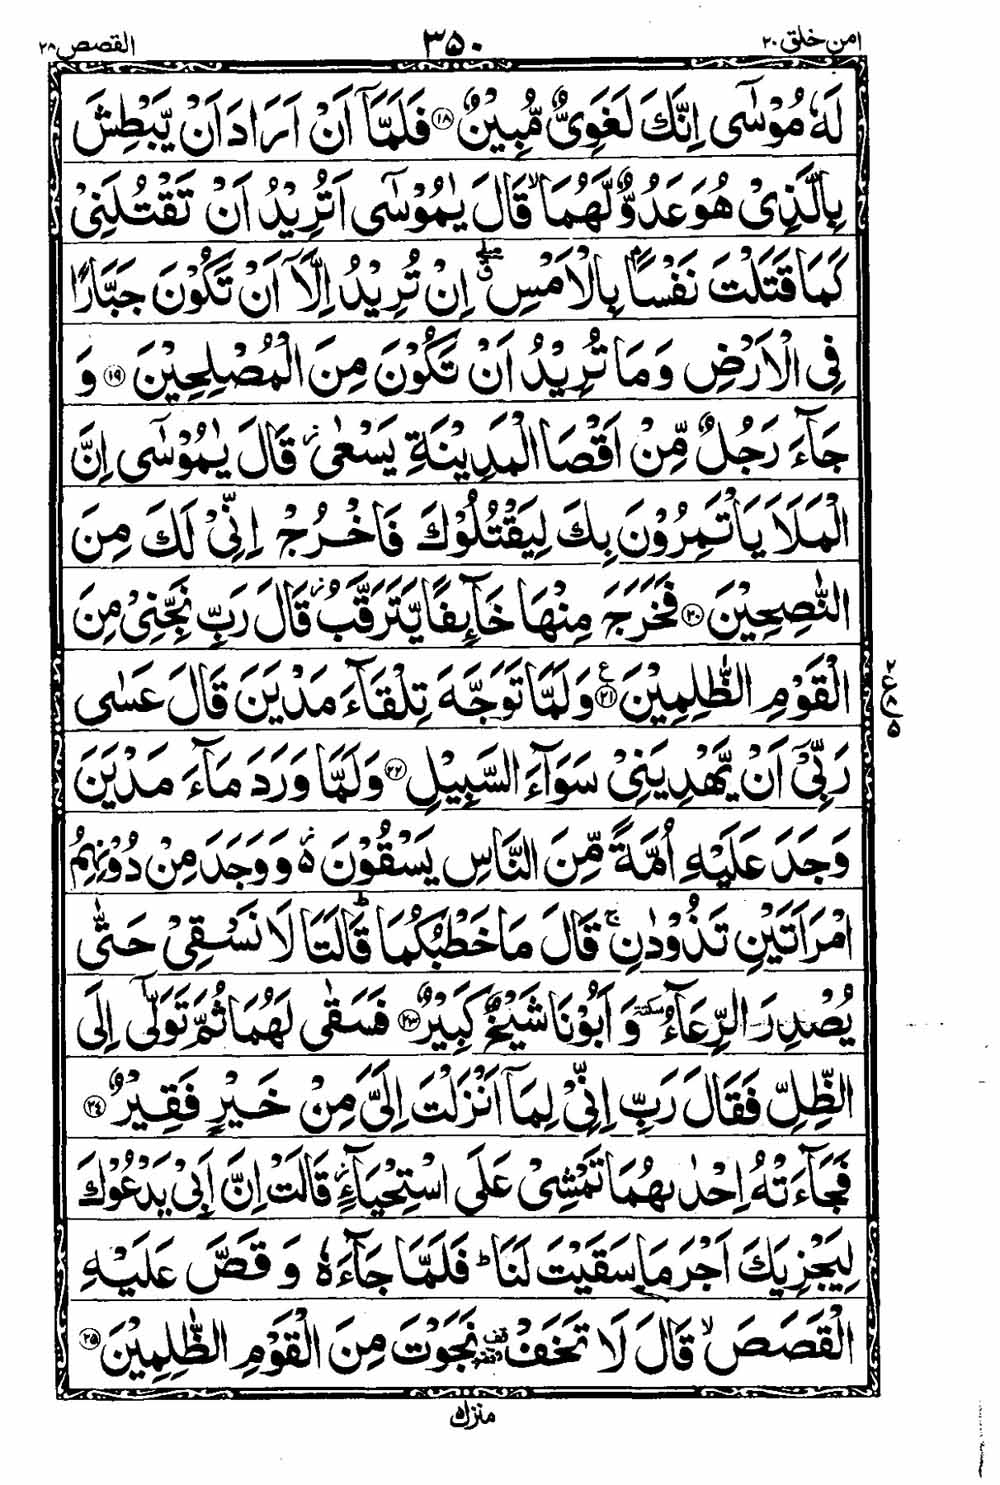 امن خلق ۲۰ ۳۵۰ القصص ۲۸
لَهٗ مُوْسٰٓى اِنَّكَ لَغَوِىٌّ مُّبِيْنٌ ۝۱۸ فَلَمَّاۤ اَنْ اَرَادَ اَنْ يَّبْطِشَ
بِالَّذِىْ هُوَ عَدُوٌّ لَّهُمَا ۙ قَالَ يٰمُوْسٰٓى اَتُرِيْدُ اَنْ تَقْتُلَنِىْ
كَمَا قَتَلْتَ نَفْسًاۢ بِالْاَمْسِ ۖق اِنْ تُرِيْدُ اِلَّاۤ اَنْ تَكُوْنَ جَبَّارًا
فِى الْاَرْضِ وَمَا تُرِيْدُ اَنْ تَكُوْنَ مِنَ الْمُصْلِحِيْنَ ۝۱۹ وَ
جَآءَ رَجُلٌ مِّنْ اَقْصَا الْمَدِيْنَةِ يَسْعٰى ز قَالَ يٰمُوْسٰٓى اِنَّ
الْمَلَاَ يَاْتَمِرُوْنَ بِكَ لِيَقْتُلُوْكَ فَاخْرُجْ اِنِّىْ لَكَ مِنَ
النّٰصِحِيْنَ ۝۲۰ فَخَرَجَ مِنْهَا خَآىِٕفًا يَّتَرَقَّبُ ز قَالَ رَبِّ نَجِّنِىْ مِنَ
الْقَوْمِ الظّٰلِمِيْنَ ۝۲۱ ع وَلَمَّا تَوَجَّهَ تِلْقَآءَ مَدْيَنَ قَالَ عَسٰى
رَبِّىْۤ اَنْ يَّهْدِيَنِىْ سَوَآءَ السَّبِيْلِ ۝۲۲ وَلَمَّا وَرَدَ مَآءَ مَدْيَنَ
وَجَدَ عَلَيْهِ اُمَّةً مِّنَ النَّاسِ يَسْقُوْنَ ەز وَوَجَدَ مِنْ دُوْنِهِمُ
امْرَاَتَيْنِ تَذُوْدٰنِ ۚ قَالَ مَا خَطْبُكُمَا ؕ قَالَتَا لَا نَسْقِىْ حَتّٰى
يُصْدِرَ الرِّعَآءُ سكتة وَ اَبُوْنَا شَيْخٌ كَبِيْرٌ ۝۲۳ فَسَقٰى لَهُمَا ثُمَّ تَوَلّٰٓى اِلَى
الظِّلِّ فَقَالَ رَبِّ اِنِّىْ لِمَاۤ اَنْزَلْتَ اِلَىَّ مِنْ خَيْرٍ فَقِيْرٌ ۝۲۴
فَجَآءَتْهُ اِحْدٰىهُمَا تَمْشِىْ عَلَى اسْتِحْيَآءٍ ز قَالَتْ اِنَّ اَبِىْ يَدْعُوْكَ
لِيَجْزِيَكَ اَجْرَ مَا سَقَيْتَ لَنَا ؕ فَلَمَّا جَآءَهٗ وَ قَصَّ عَلَيْهِ
الْقَصَصَ ۙ قَالَ لَا تَخَفْ قف نَجَوْتَ مِنَ الْقَوْمِ الظّٰلِمِيْنَ ۝۲۵
منزل ۵